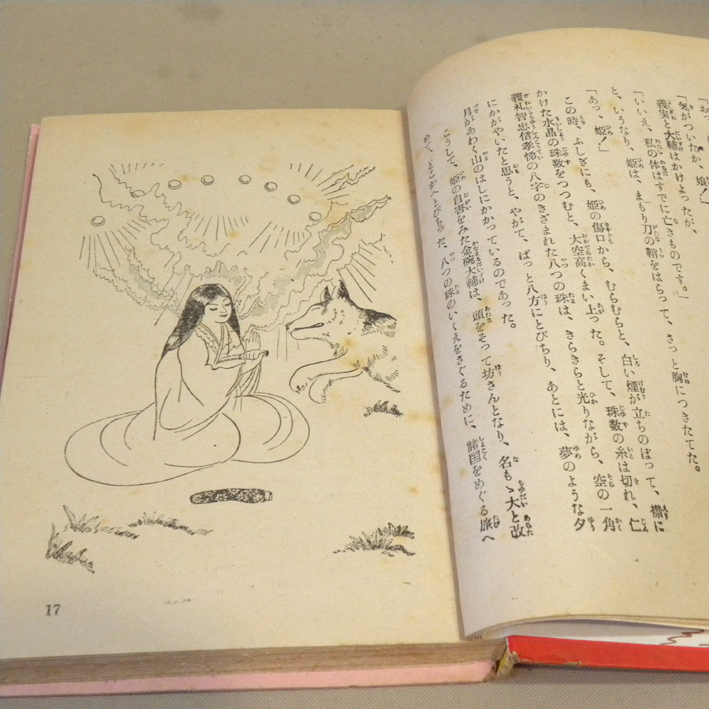 「気がついたか、娘！」
義実と大輔はかけよったが、
「いいえ、私の体はすでに亡きものです。」
と、いうなり、姫は、まもり刀の鞘をはらって、さっと胸につきたてた。
「あっ、姫！」
この時、ふしぎにも、姫の傷口から、むらむらと、白い煙が立ちのぼって、襟に
かけた水晶の珠数をつつむと、大空高くまい上った。そして、珠数の糸は切れ、仁
義礼智忠信孝悌の八字のきざまれた八つの珠は、きらきらと光りながら、空の一角
にかがやいたと思うと、やがて、ぱっと八方にとびちり、あとには、夢のような夕
月があわく山のはしにかかっているのであった。
こうして、姫の自害をみた金碗大輔は、頭をそって坊さんとなり、名もゝ大と改
めて、どこかへとびちった、八つの珠のいくえをさぐるために、諸国をめぐる旅へ
17